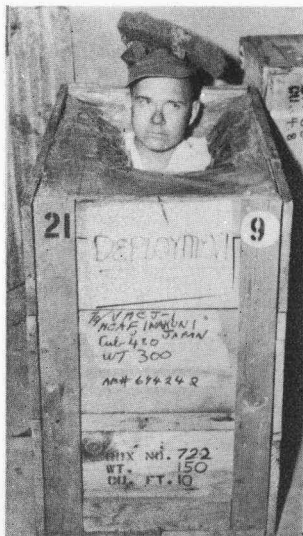 21 9
DEPLOYMENT
VMCJ-1
MCAF IWAKUNI
JAPAN
Cub 420
WT 300
BOX NO. 722
WT. 150
CU. FT. 10